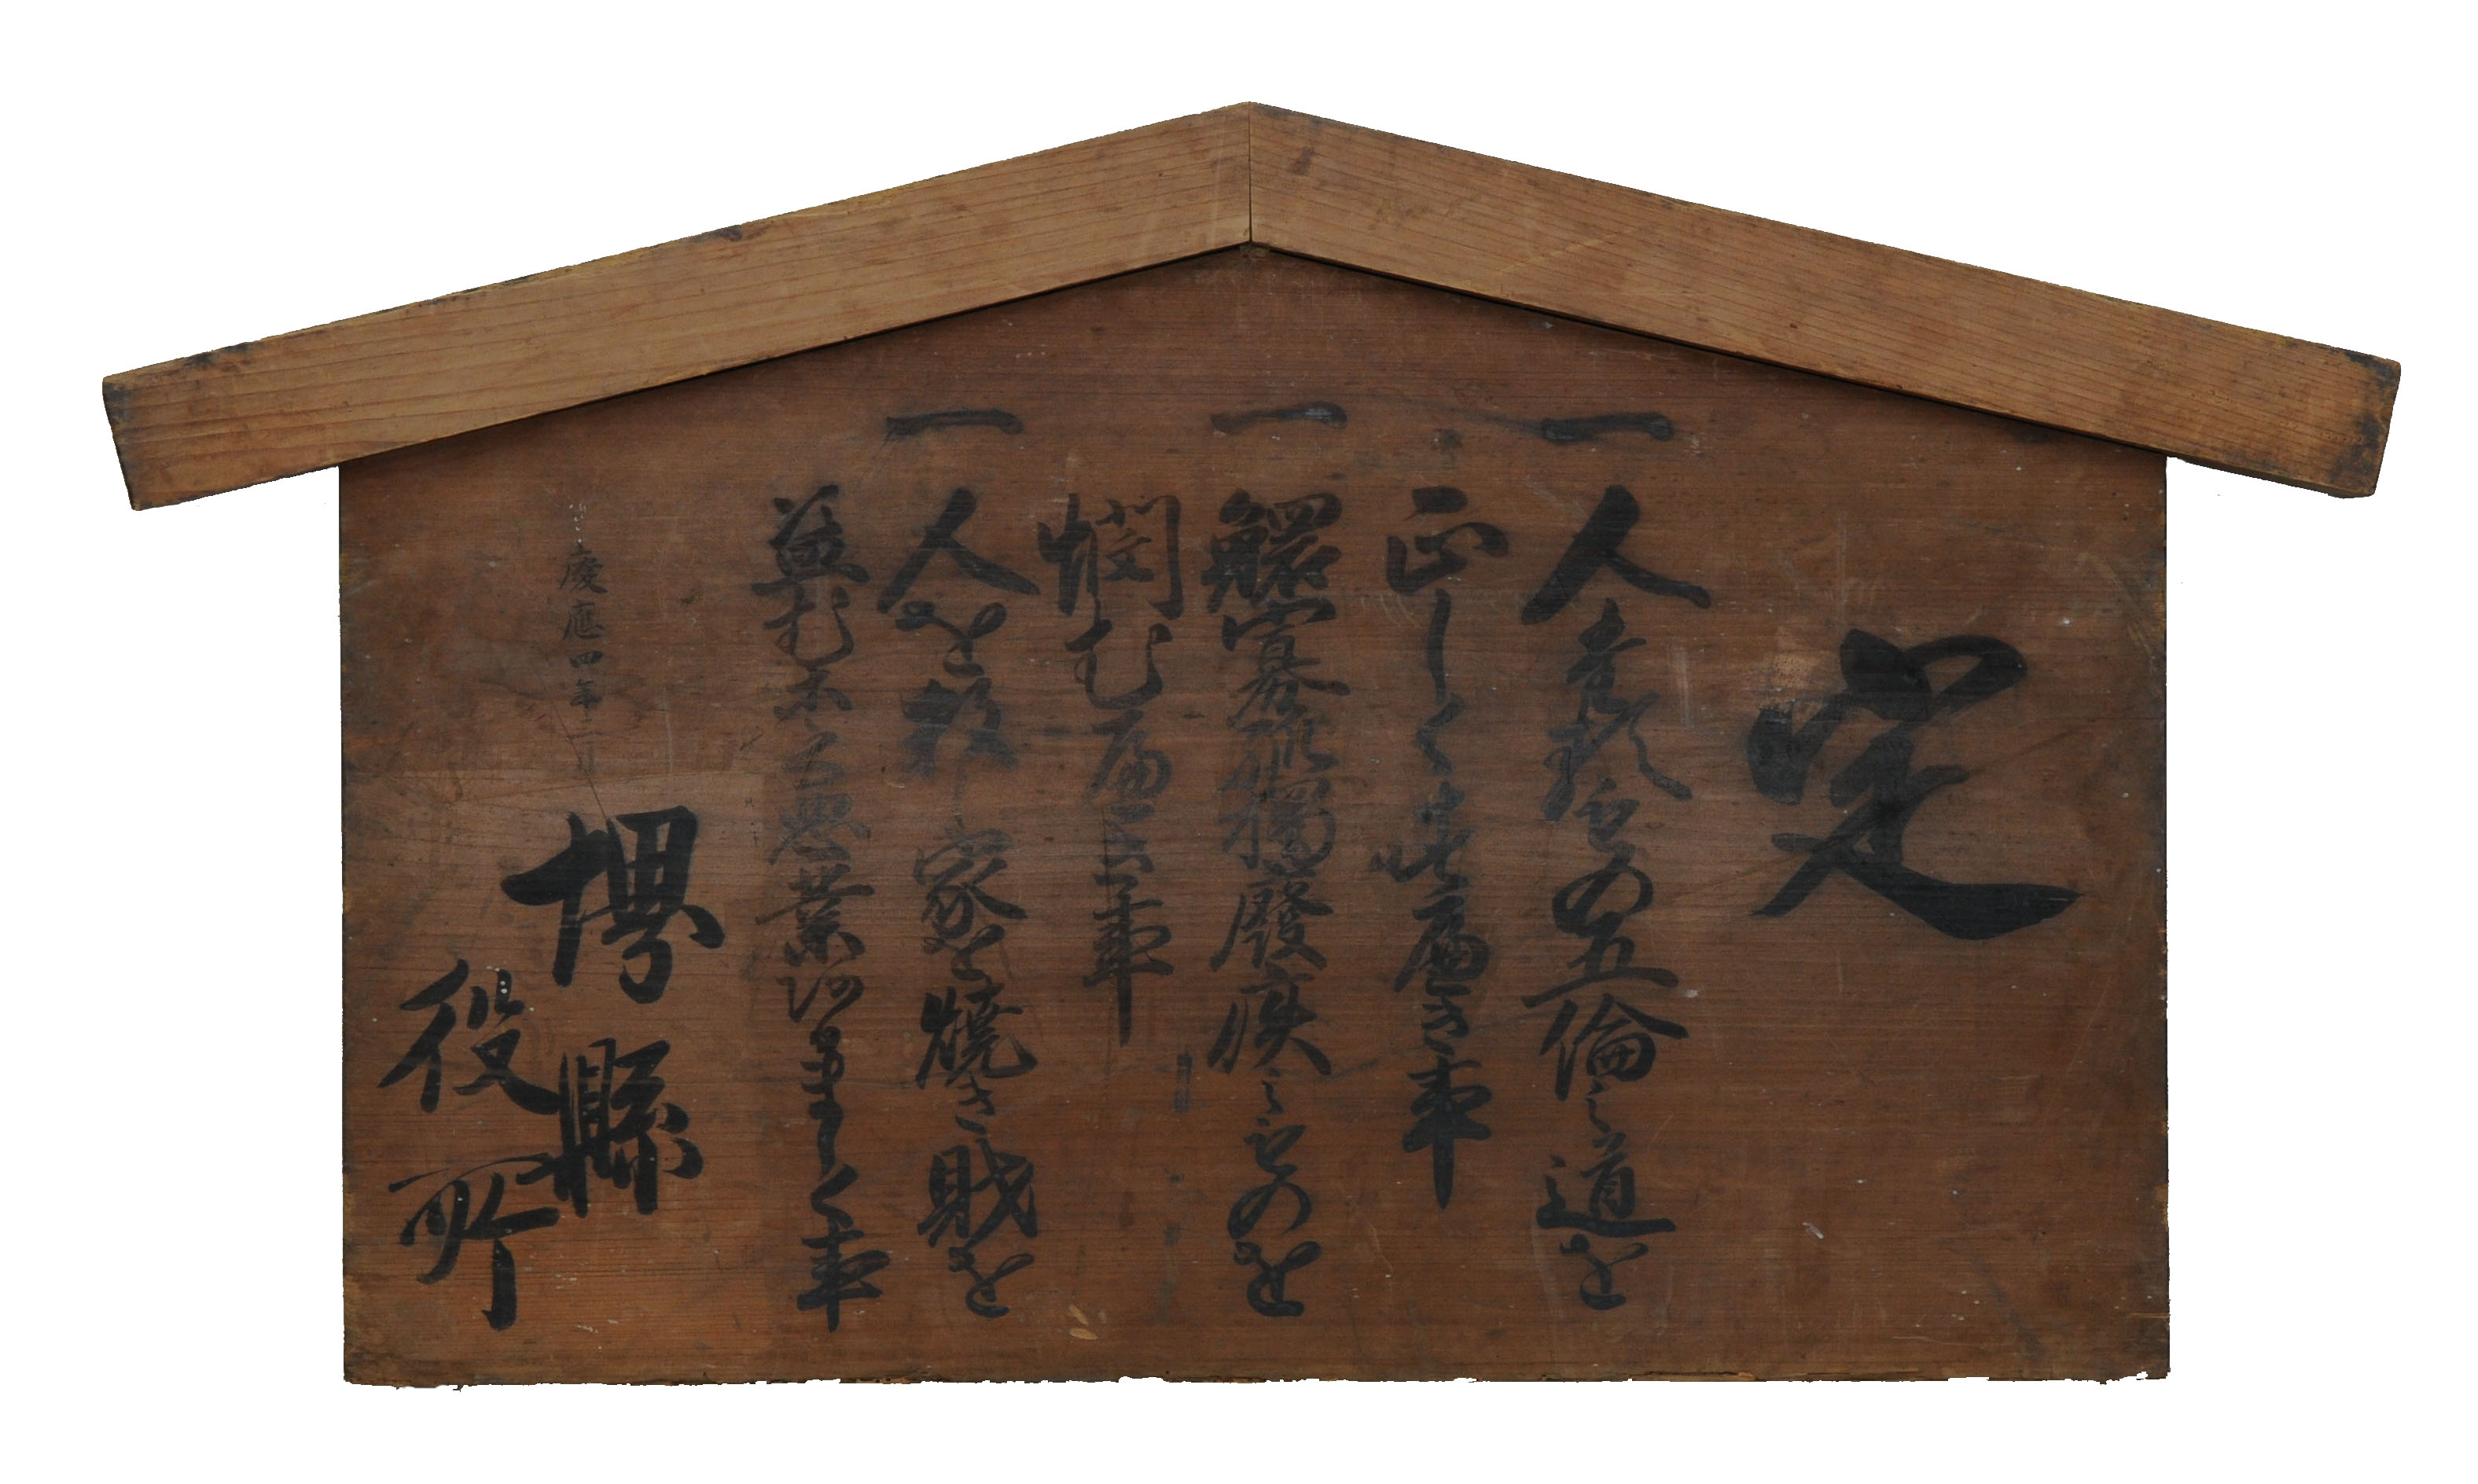 定
一 人たるもの五倫之道を
正しくすへき事
一 鰥寡孤獨廢疾之ものを
憫むへき事
一 人を殺し家を焼き財を
盗む等之悪業あるましく事
慶應四年三月
堺縣
役所